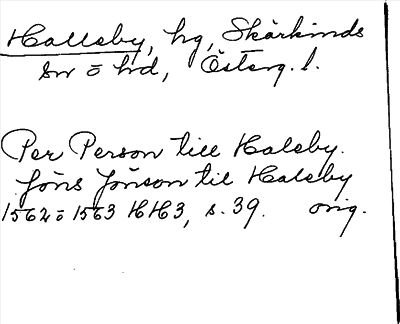 Hallsby, hg, Skärkinds
sn o hd, Österg. l.
Per Person till Halsby.
Jöns Jönson til Halsby
1562 o 1563 HH3, s. 39. orig.